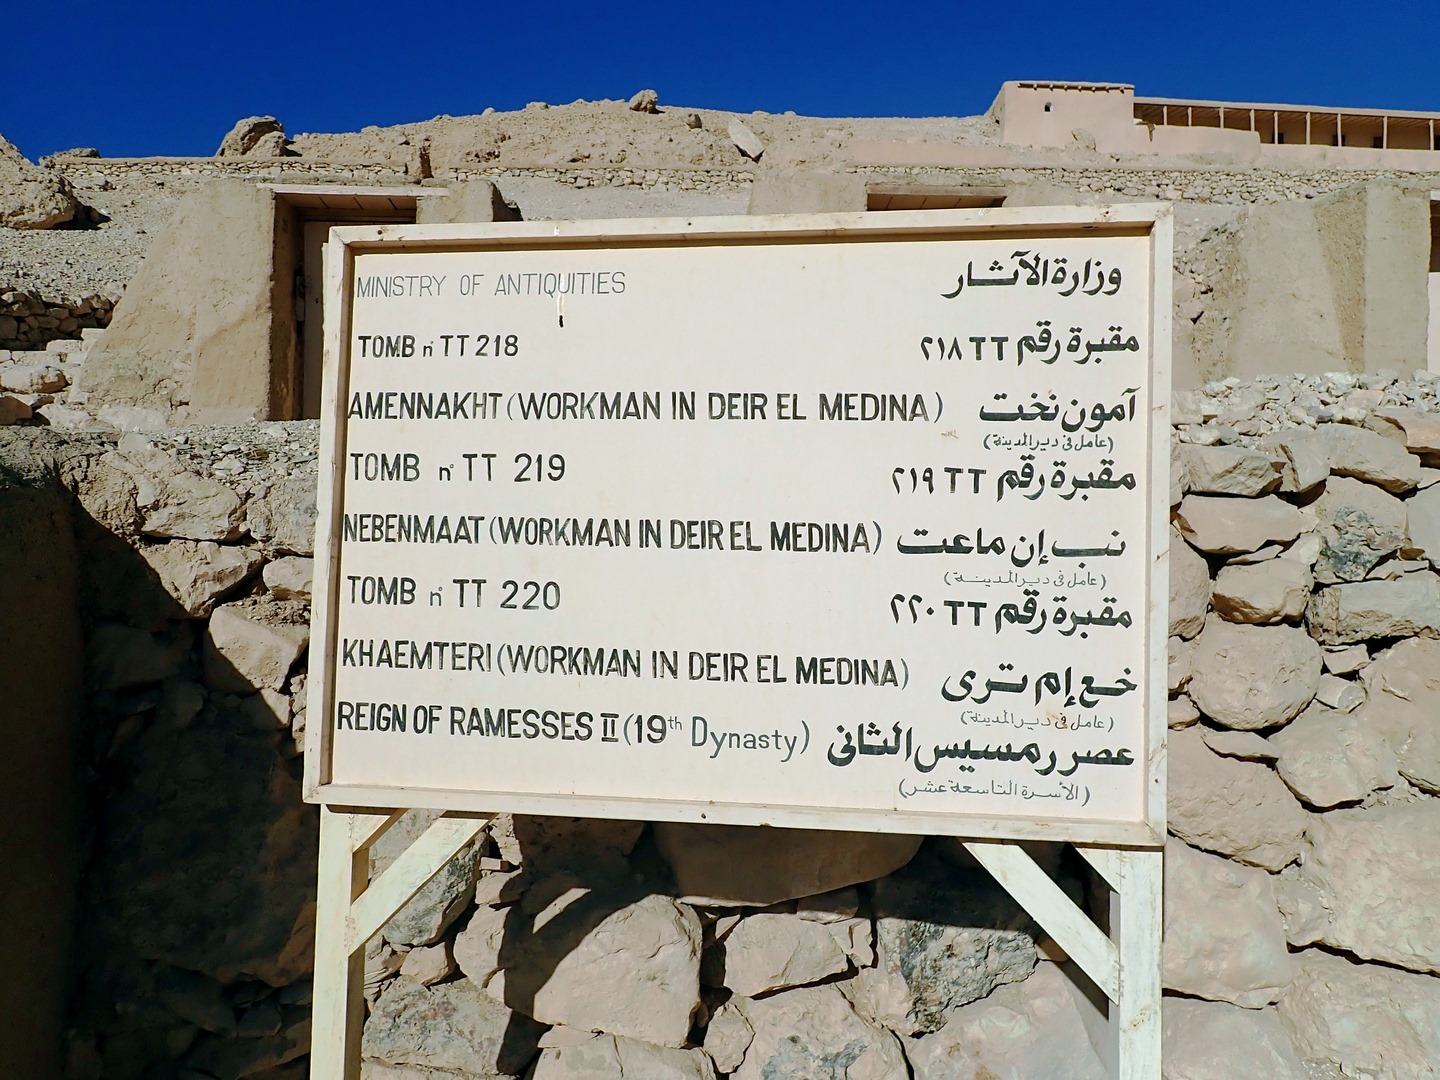 MINISTRY OF ANTIQUITIES وزارة الآثار
TOMB n° TT 218 مقبرة رقم TT ٢١٨
AMENNAKHT (WORKMAN IN DEIR EL MEDINA) آمون نخت
(عامل فى دير المدينة)
TOMB n° TT 219 مقبرة رقم TT ٢١٩
NEBENMAAT (WORKMAN IN DEIR EL MEDINA) نب إن ماعت
(عامل فى دير المدينة)
TOMB n° TT 220 مقبرة رقم TT ٢٢٠
KHAEMTERI (WORKMAN IN DEIR EL MEDINA) خع إم ترى
(عامل فى دير المدينة)
REIGN OF RAMESSES II (19th Dynasty) عصر رمسيس الثانى
(الأسرة التاسعة عشر)